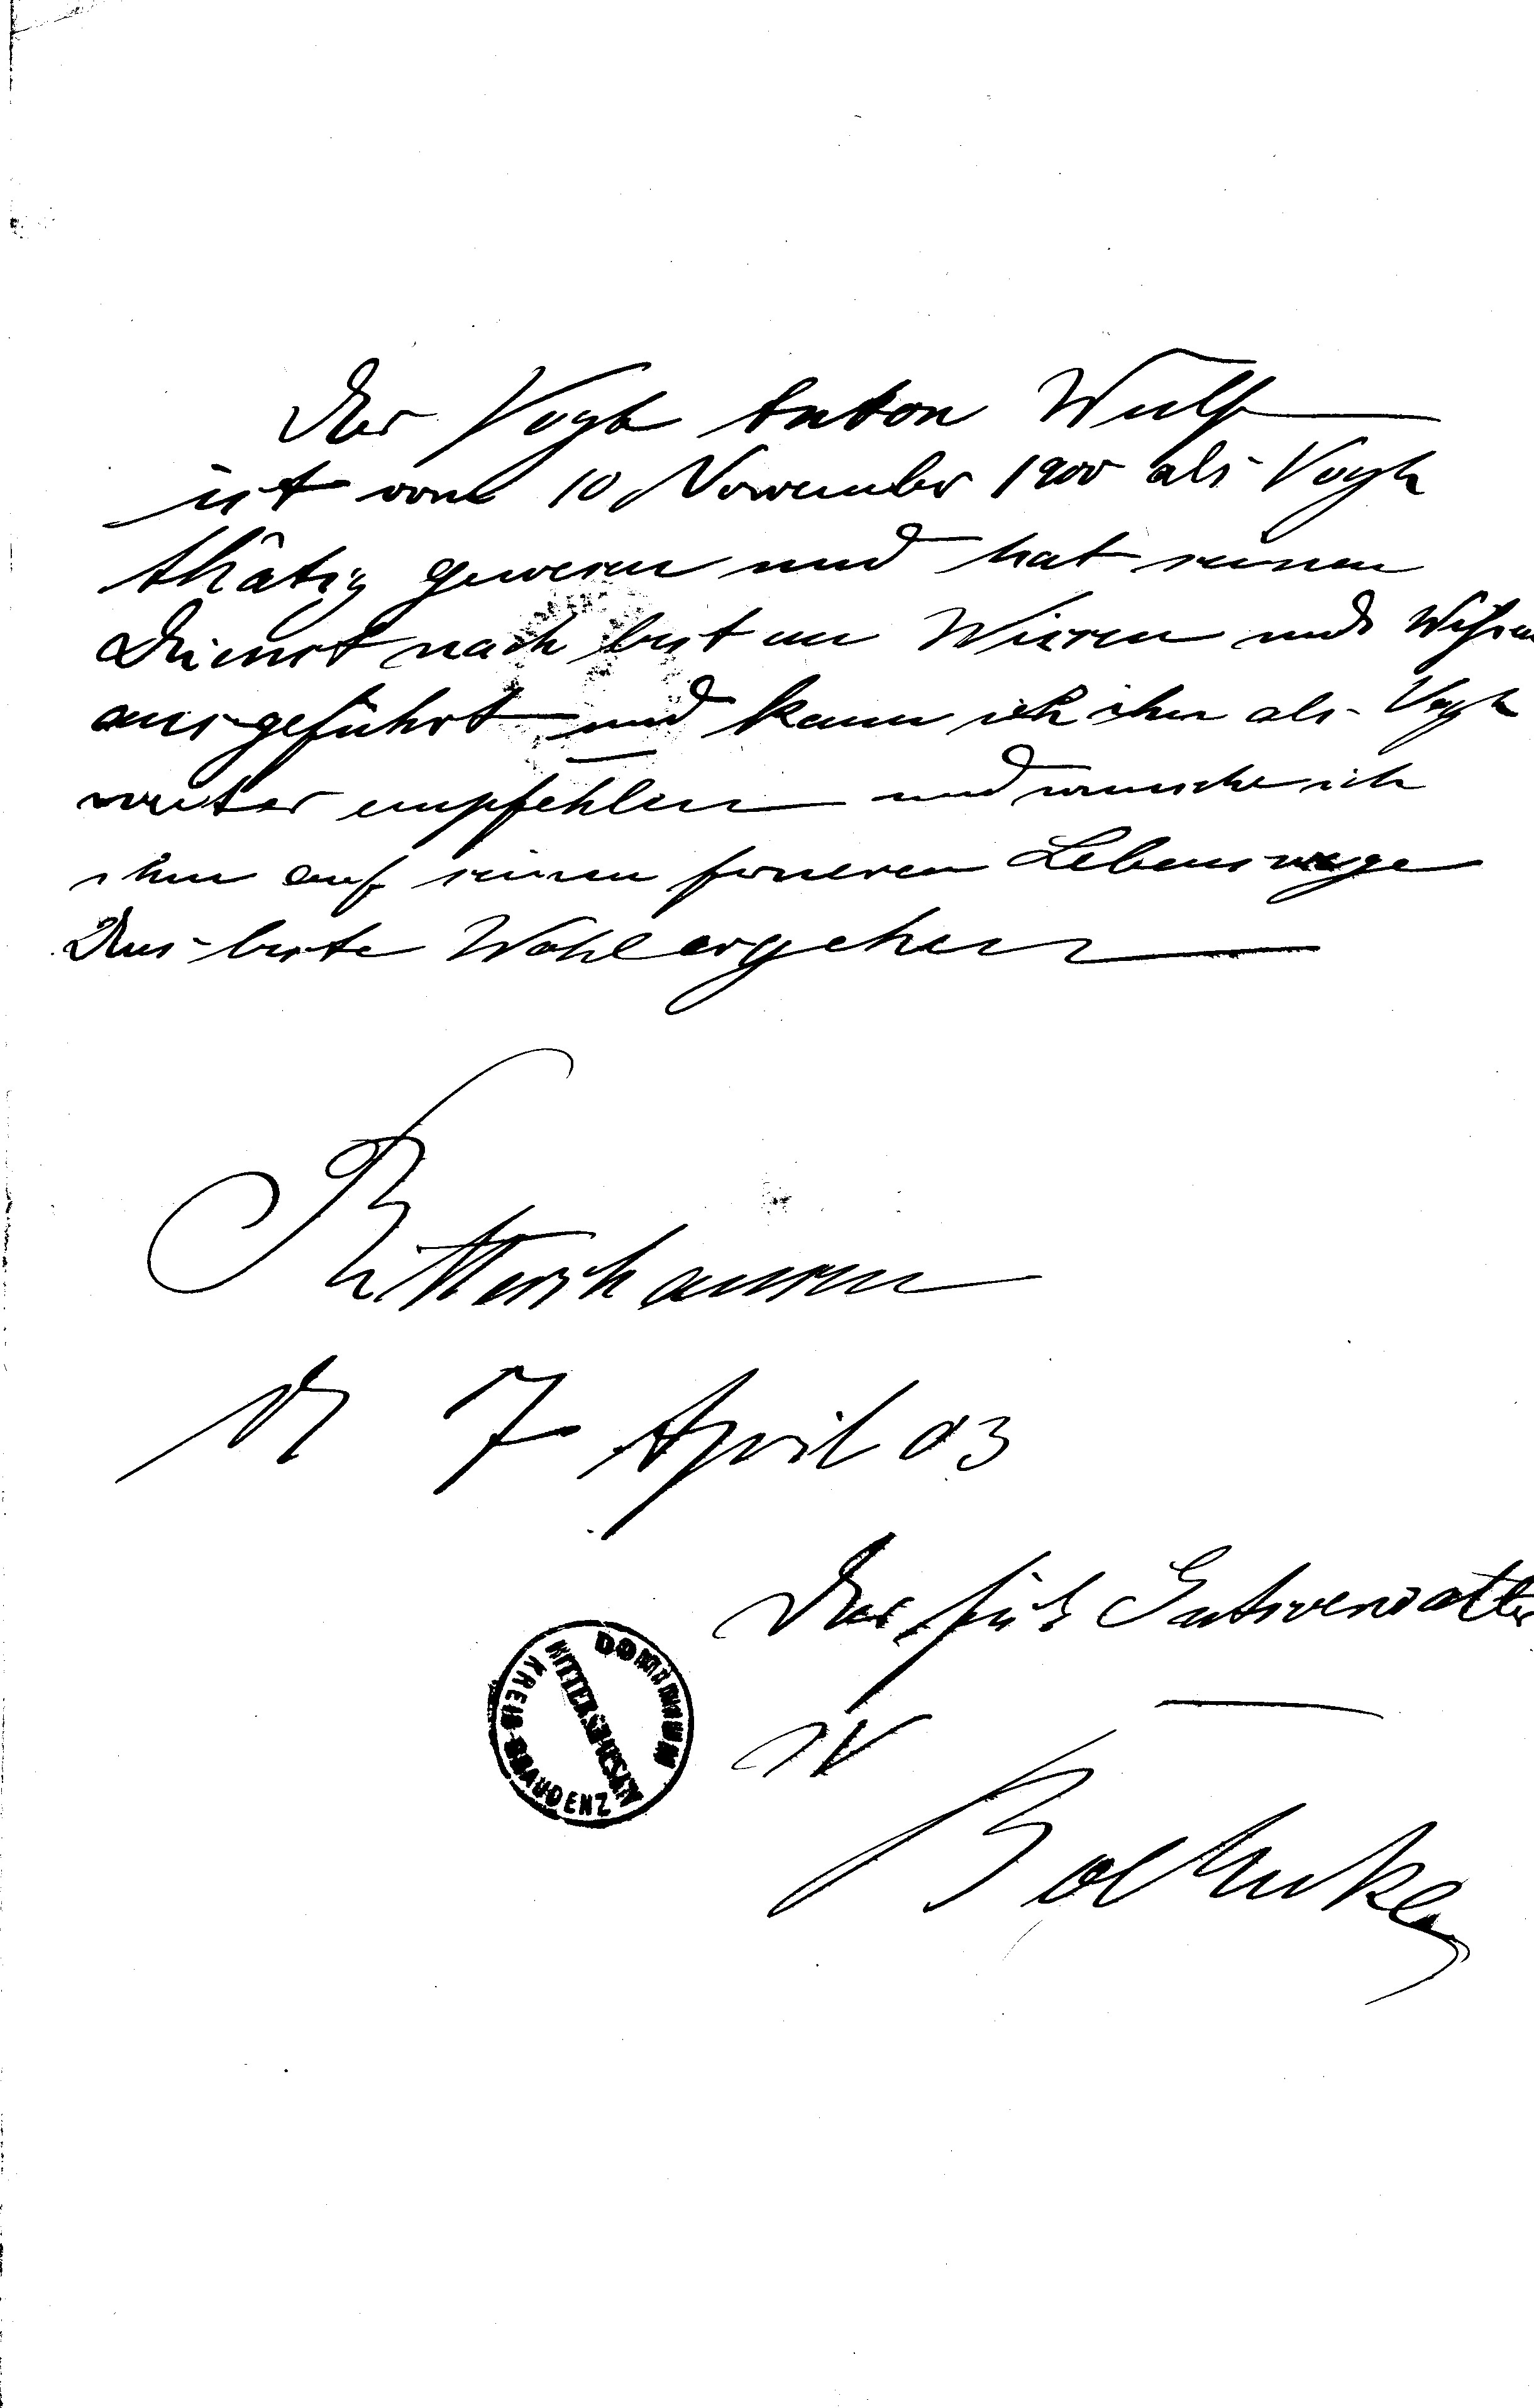 Der Vogt Anton Wulf
ist vom 10 November 1900 als Vogt
thätig gewesen und hat seinen
Dienst nach besten Wissen und
ausgeführt und kann ich ihn als Vogt
weiter empfehlen und wünsche ich
ihm auf seinen ferneren Lebenswege
Das beste Wohlergehen
Rittershausen
d 7 April 03
Der Gutsverwalter
DOMINIUM
RITTERSHAUSEN
KREIS GRAUDENZ
IV